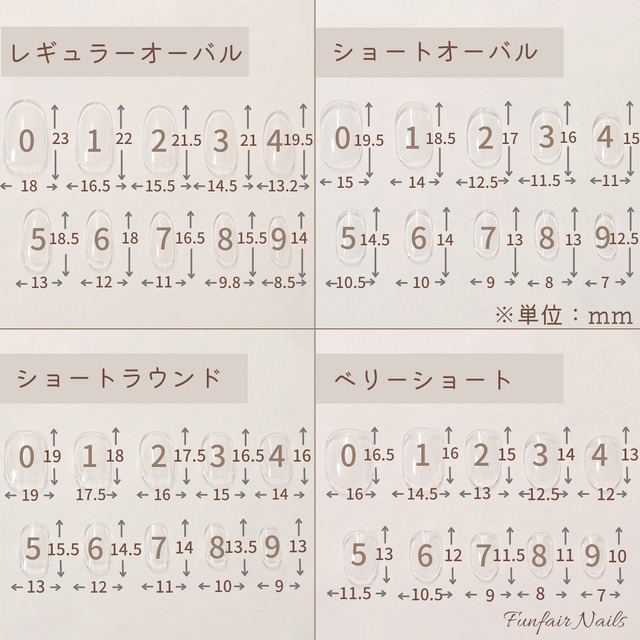 レギュラーオーバル
0 23 1 22 2 21.5 3 21 4 19.5
18 16.5 15.5 14.5 13.2
5 18.5 6 18 7 16.5 8 15.5 9 14
13 12 11 9.8 8.5
ショートオーバル
0 19.5 1 18.5 2 17 3 16 4 15
15 14 12.5 11.5 11
5 14.5 6 14 7 13 8 13 9 12.5
10.5 10 9 8 7
※単位：mm
ショートラウンド
0 19 1 18 2 17.5 3 16.5 4 16
19 17.5 16 15 14
5 15.5 6 14.5 7 14 8 13.5 9 13
13 12 11 10 9
ベリーショート
0 16.5 1 16 2 15 3 14 4 13
16 14.5 13 12.5 12
5 13 6 12 7 11.5 8 11 9 10
11.5 10.5 9 8 7
Funfair Nails